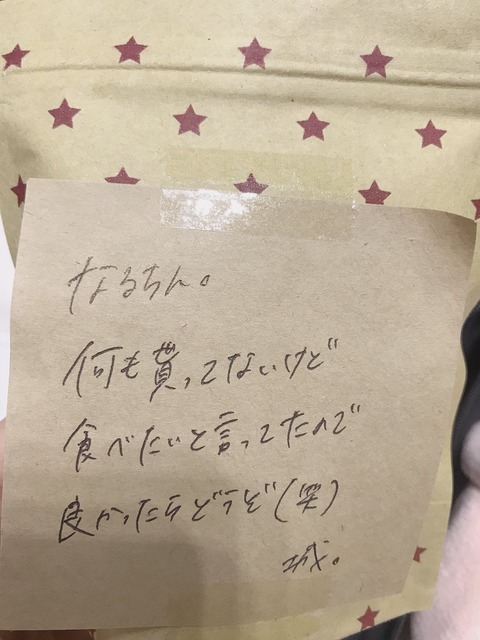 なるちん。
何も貰ってないけど
食べたいと言ってたので
良かったらどうぞ(笑)
城。